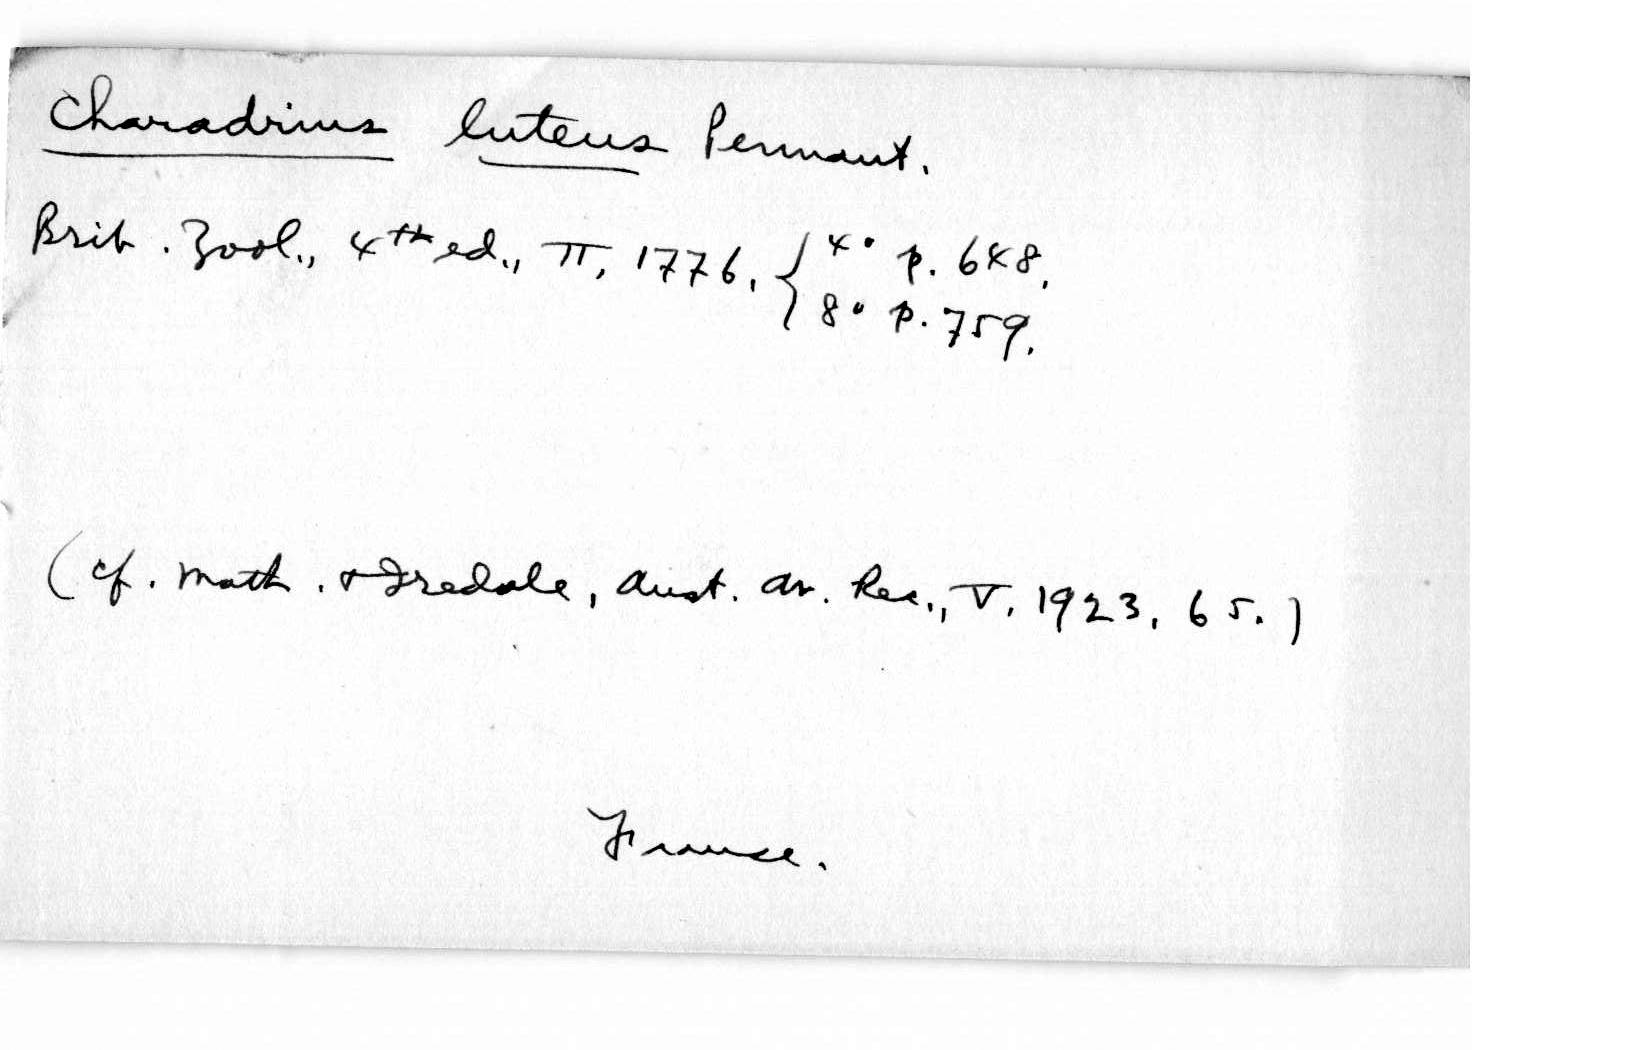 Charadrius luteus Pennant.
Brit. Zool., 4th ed., II, 1776, { 4° p. 648,
8° p. 759.
(cf. Math. & Iredale, Aust. Av. Rec., V, 1923, 65.)
France.